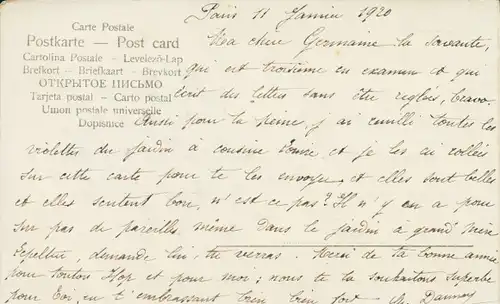 Paris 11 Janvier 1920
Carte Postale
Postkarte — Post card
Cartolina Postale - Levelező-Lap
Brefkort - Briefkaart - Brevkort
ОТКРЫТОЕ ПИСЬМО
Tarjeta postal - Carto postal
Union postale universelle
Dopisnice
Ma chère Germaine la savante,
qui est troisième en examen et qui
écrit des lettres sans être réglées, bravo.
Aussi pour la peine, j'ai cueilli toutes les
violettes du jardin à cousine et je les ai collées
sur cette carte pour te les envoyer et elles sont belles
et elles sentent bon, n'est ce pas? Il n'y en a pour
sur pas de pareilles, même dans le jardin a grand' mère
demande lui, tu verras. Merci de ta bonne année
pour tonton et pour moi; nous te la souhaitons superbe
pour toi, en t'embrassant bien bien fort.